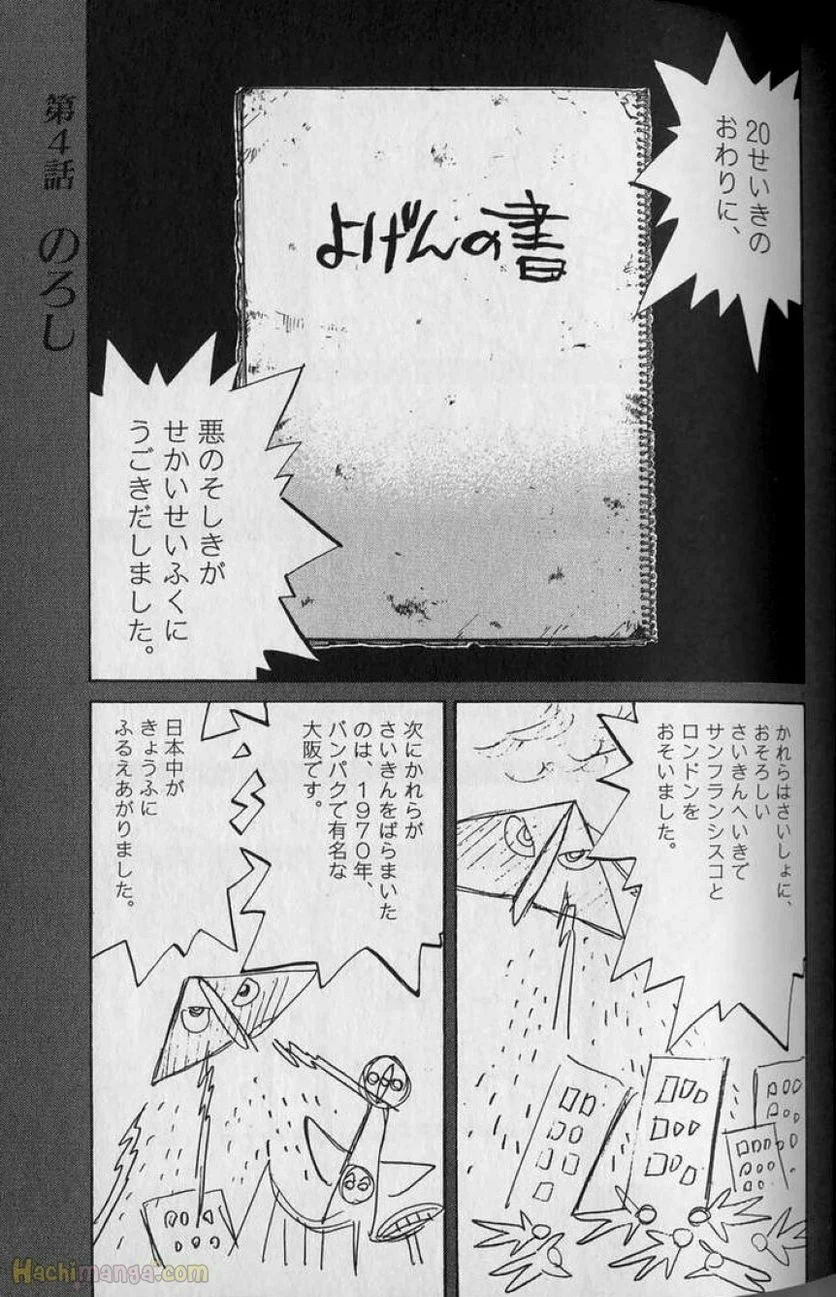 第4話 のろし
20せいきの
おわりに、
よげんの書
悪のそしきが
せかいせいふくに
うごきだしました。
かれらはさいしょに、
おそろしい
さいきんへいきで
サンフランシスコと
ロンドンを
おそいました。
次にかれらが
さいきんをばらまいた
のは、1970年、
バンパクで有名な
大阪です。
日本中が
きょうふに
ふるえあがりました。
Hachimanga.com